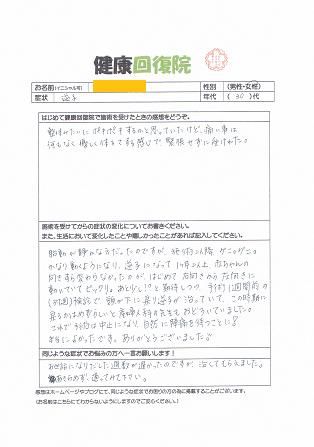 健康回復院
お名前(イニシャル可)
性別 (男性・女性)
症状 逆子
年代 (30)代
はじめて健康回復院で施術を受けたときの感想をどうぞ。
整体みたいにボキボキするかと思っていたけど、痛い事は
何もなく優しく体をさする感じで、緊張せずに受けれた。
施術を受けてからの症状の変化についてお書きください。
また、生活において変化したことや嬉しかったことがあれば記入してください。
胎動が静かな子だったのですが、施術以降、グニョグニョ
かなり動くようになり、逆子になって1ヶ月以上、赤ちゃんの
向きすら変わらなかったが、はじめて右向きから左向きに
動いていてビックリ。
検診で、頭が下に戻り逆子が治っていて、この時期に
戻るのはめずらしいと産婦人科の先生もおどろいていました。
これで手術は中止になり、自然に陣痛を待つことに!
本当によかったです。ありがとうございました。
同じような症状でお悩みの方へ一言お願いします!
お世話になりだした週数が遅かったのですが、治してもらえました。
あきらめず、通ってみて下さい。
感想はホームページやブログにて、同じような症状でお困りの方の為に掲載することがございます。
(お名前はこちらにてわからないようにしますのでご安心ください)